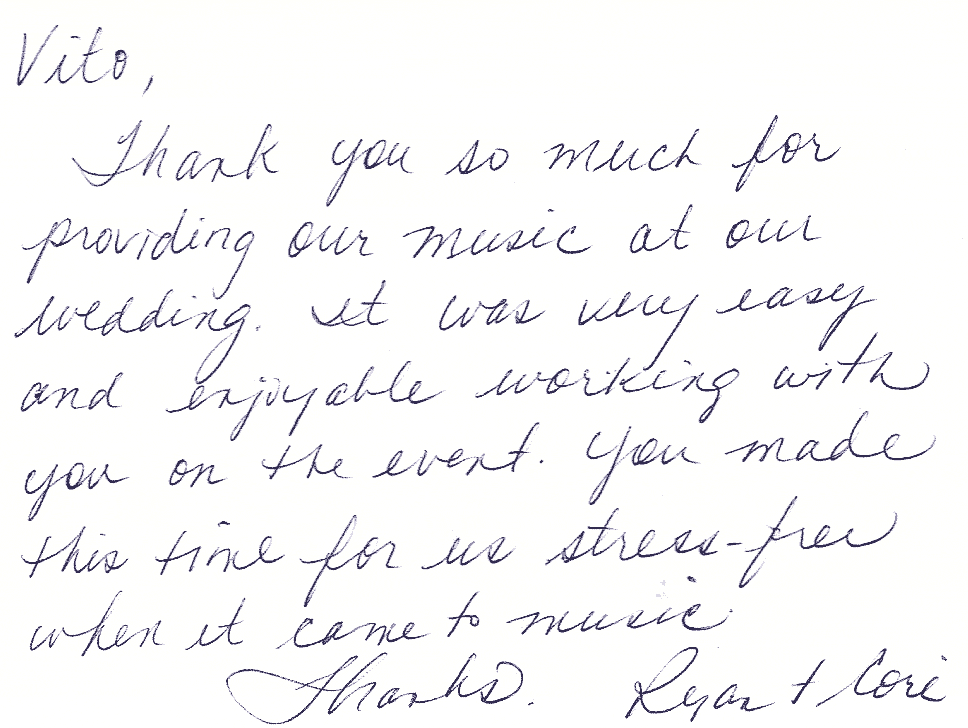 Vito,
Thank you so much for
providing our music at our
wedding. It was very easy
and enjoyable working with
you on the event. You made
this time for us stress-free
when it came to music
Thanks. Ryan + Cori